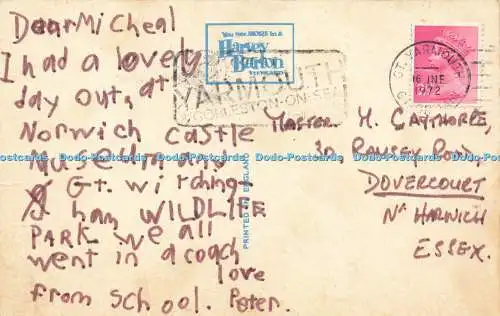 Dear Micheal
I had a lovely
day out, at
Norwich castle
Museum, and
Gt. witching-
ham WILDLIFE
PARK we all
went in a coach
from School.
love
Peter.
You saw MORE in a
Harvey
Barton
VIEWCARD
YARMOUTH
GORLESTON-ON-SEA
GT. YARMOUTH
16 JNE
1972
PRINTED IN ENGLAND
MASTER M. CAYTHORPE,
30, RAMSEY ROAD,
DOVERCOURT
Nr HARWICH
ESSEX.
Dodo-Postcards Dodo-Postcards Dodo-Postcards Dodo-Postcards Dodo-Postcards